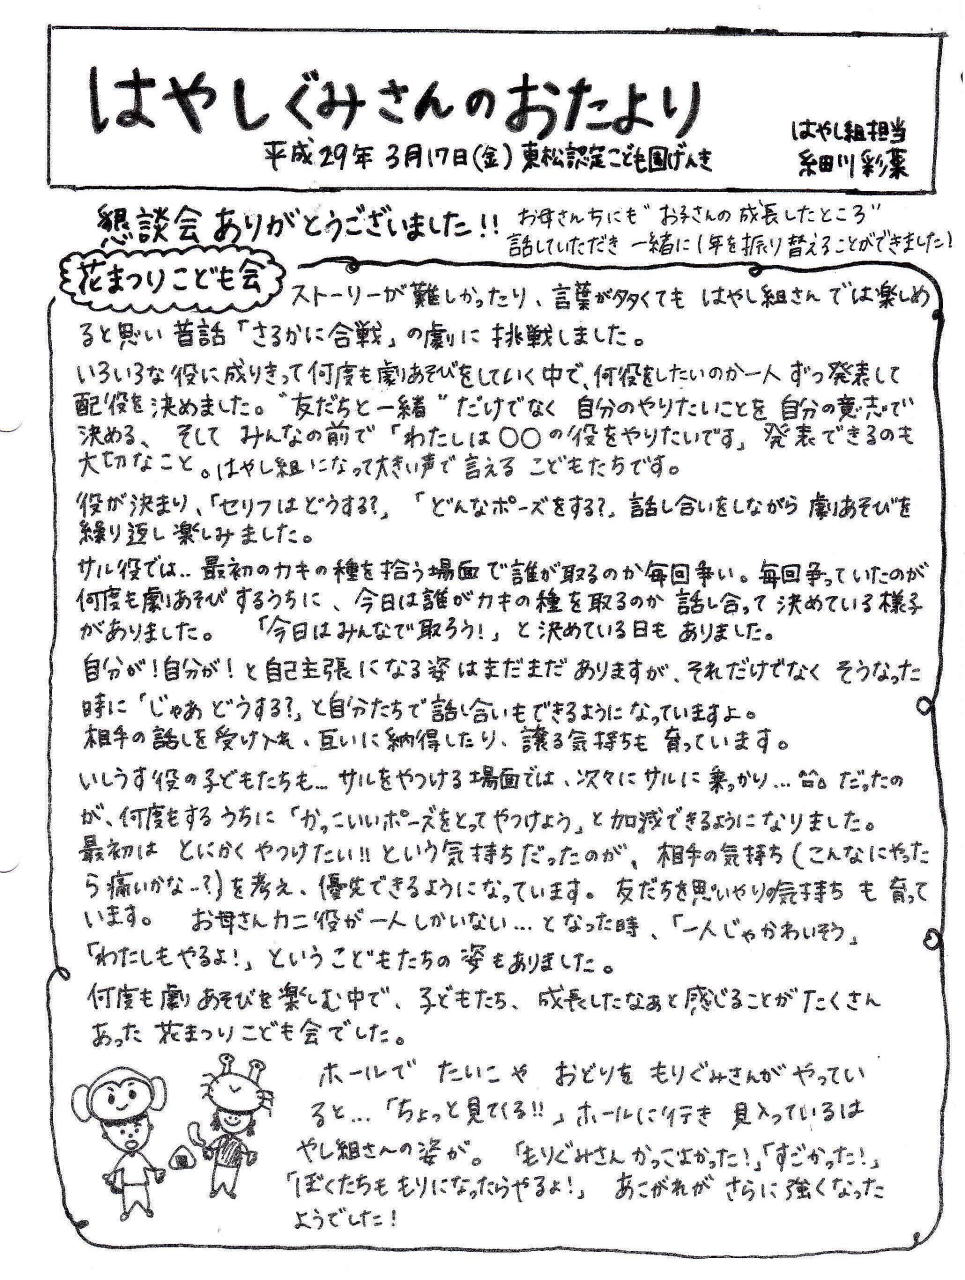 はやしぐみさんのおたより
平成29年 3月17日(金) 東松認定こども園げんき
はやし組担当
細川彩菜
懇談会ありがとうございました!!
お母さんちにも"お子さんの成長したところ"
話していただき 一緒に1年を振り替えることができました!
花まつりこども会
ストーリーが難しかったり、言葉が多くても はやし組さんでは楽しめ
ると思い 昔話「さるかに合戦」の劇に 挑戦しました。
いろいろな役に成りきって何度も劇あそびをしていく中で、何役をしたいのか一人ずつ発表して
配役を決めました。"友だちと一緒"だけでなく 自分のやりたいことを 自分の意志で
決める、そして みんなの前で「わたしは〇〇の役をやりたいです」発表できるのも
大切なこと。はやし組になって大きい声で言える こどもたちです。
役が決まり、「セリフはどうする?」「どんなポーズをする?」話し合いをしながら 劇あそびを
繰り返し楽しみました。
サル役では‥最初のカキの種を拾う場面で誰が取るのか毎回争い。毎回争っていたのが
何度も劇あそびするうちに、今日は誰がカキの種を取るのか 話し合って 決めている様子
がありました。 「今日はみんなで取ろう!」と決めている日も ありました。
自分が!自分が!と自己主張になる姿はまだまだありますが、それだけでなく そうなった
時に「じゃあ どうする?」と自分たちで話し合いもできるようになっていますよ。
相手の話しを受け入れ、互いに納得したり、譲る気持ちも 育っています。
いしうす役の子どもたちも…サルをやつける場面では、次々にサルに乗っかり…だったの
が、何度もするうちに「かっこいいポーズをとってやつけよう」と加減できるようになりました。
最初は とにかくやつけたい!!という気持ちだったのが、相手の気持ち(こんなにやった
ら痛いかな‥?)を考え、優先できるようになっています。友だちを思いやりの気持ちも 育って
います。 お母さんカニ役が一人しかいない…となった時、「一人じゃかわいそう」
「わたしもやるよ!」というこどもたちの姿もありました。
何度も劇あそびを楽しむ中で、子どもたち、成長したなぁと感じることがたくさん
あった 花まつりこども会でした。
ホールで たいこや おどりを もりぐみさんがやってい
ると…「ちょっと見てくる!!」ホールに行き 見入っているは
やし組さんの姿が。「もりぐみさんかっこよかった!」「すごかった!」
「ぼくたちももりになったらやるよ!」 あこがれが さらに強くなった
ようでした!